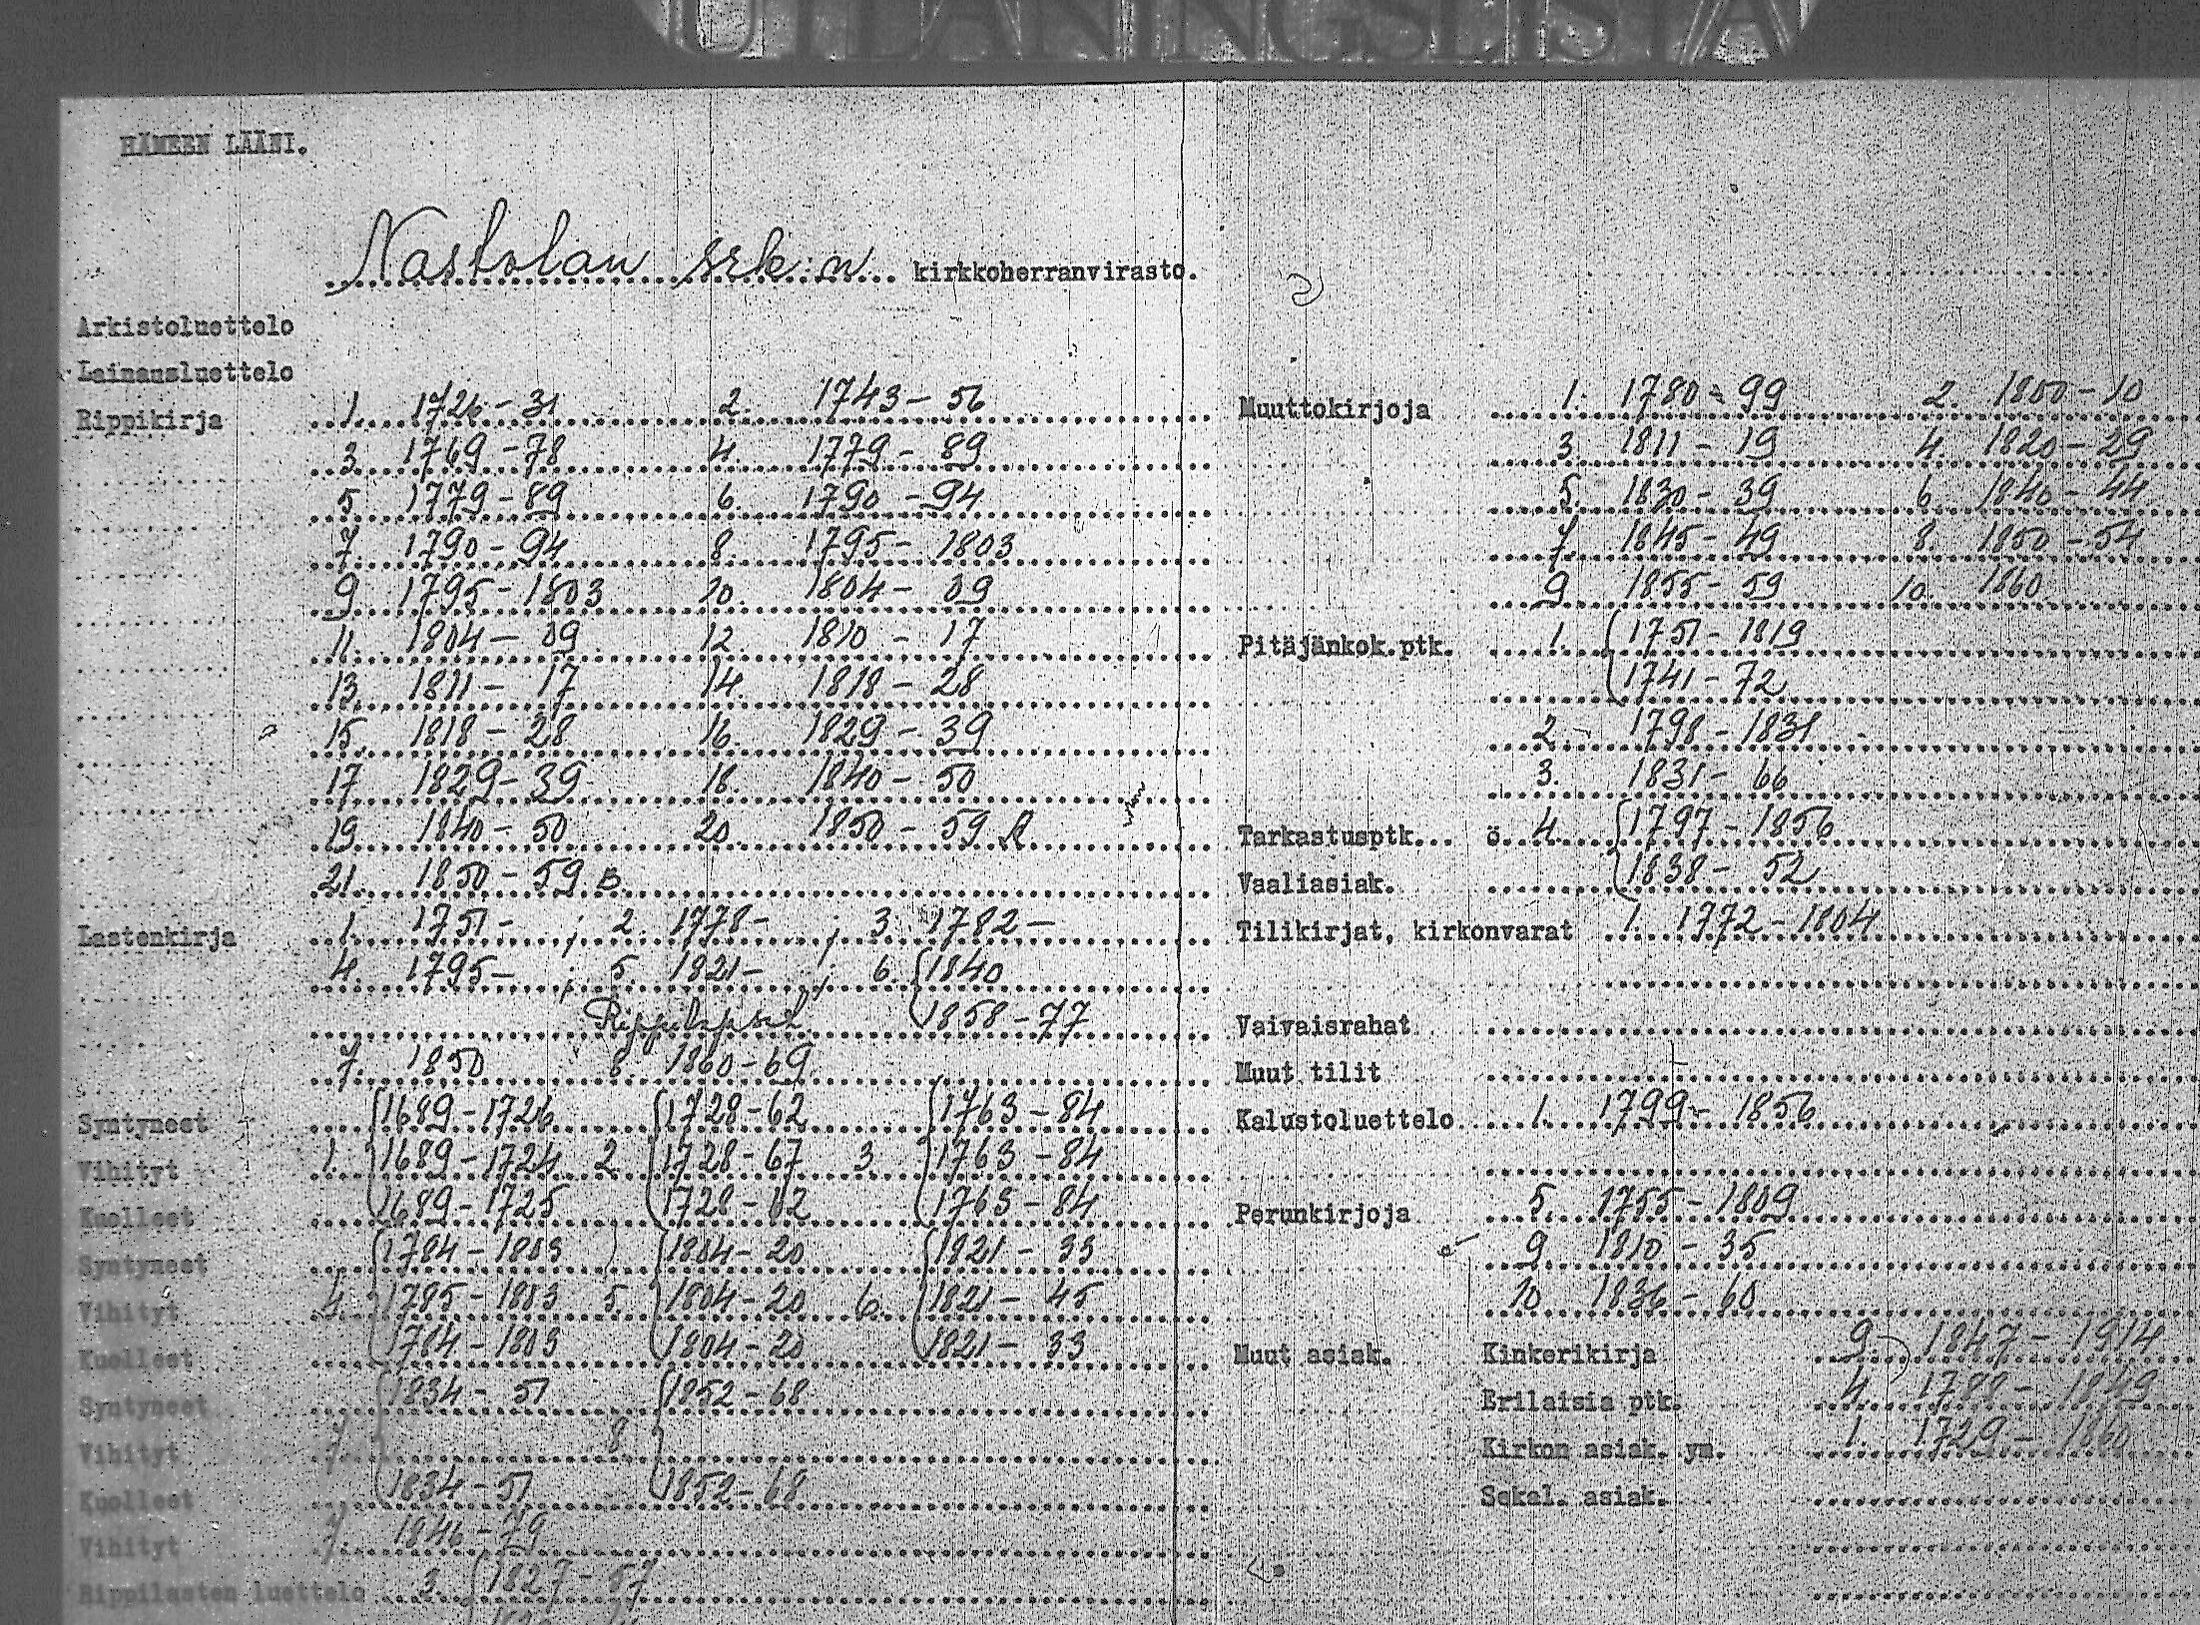 UTLÅNINGSLISTA
HÄMEEN LÄÄNI.
Nastolan srk:n kirkkoherranvirasto.
Arkistoluettelo
Lainausluettelo
Rippikirja 1. 1726-31 2. 1743-56
3. 1769-78 4. 1779-89
5. 1779-89 6. 1790-94
7. 1790-94 8. 1795-1803
9. 1795-1803 10. 1804-09
11. 1804-09 12. 1810-17
13. 1811-17 14. 1818-28
15. 1818-28 16. 1829-39
17. 1829-39 18. 1840-50
19. 1840-50 20. 1850-59
21. 1850-59 B.
Lastenkirja 1. 1751- ; 2. 1778- ; 3. 1782-
4. 1795- ; 5. 1821- ; 6. 1840
Rippilapset 1858-77
7. 1850 8. 1860-69
Syntyneet 1689-1726 1728-62 1763-84
Vihityt 1. 1689-1724 2. 1728-67 3. 1763-84
Kuolleet 1689-1725 1728-62 1763-84
Syntyneet 1784-1803 1804-20 1821-33
Vihityt 4. 1785-1803 5. 1804-20 6. 1821-45
Kuolleet 1784-1803 1804-20 1821-33
Syntyneet 1834-51 1852-68
Vihityt 7. 8
Kuolleet 1834-51 1852-68
Vihityt 7. 1846-79
Rippilasten luettelo 3. 1827-57
Muuttokirjoja 1. 1780-99 2. 1800-10
3. 1811-19 4. 1820-29
5. 1830-39 6. 1840-44
7. 1845-49 8. 1850-54
9 1855-59 10. 1860
Pitäjänkok.ptk. 1. 1751-1819
1741-72
2 1798-1831
3. 1831-66
Tarkastusptk. ö 4. 1797-1856
Vaaliasiak. 1838-52
Tilikirjat, kirkonvarat 1. 1772-1804
Vaivaisrahat
Muut tilit
Kalustoluettelo 1. 1799-1856
Perunkirjoja 5. 1755-1809
9 1810-35
10 1836-60
Muut asiak. Kinkerikirja 9. 1847-1914
Erilaisia ptk. 4. 1788-1849
Kirkon asiak. ym. 1. 1729-1860
Sekal. asiak.